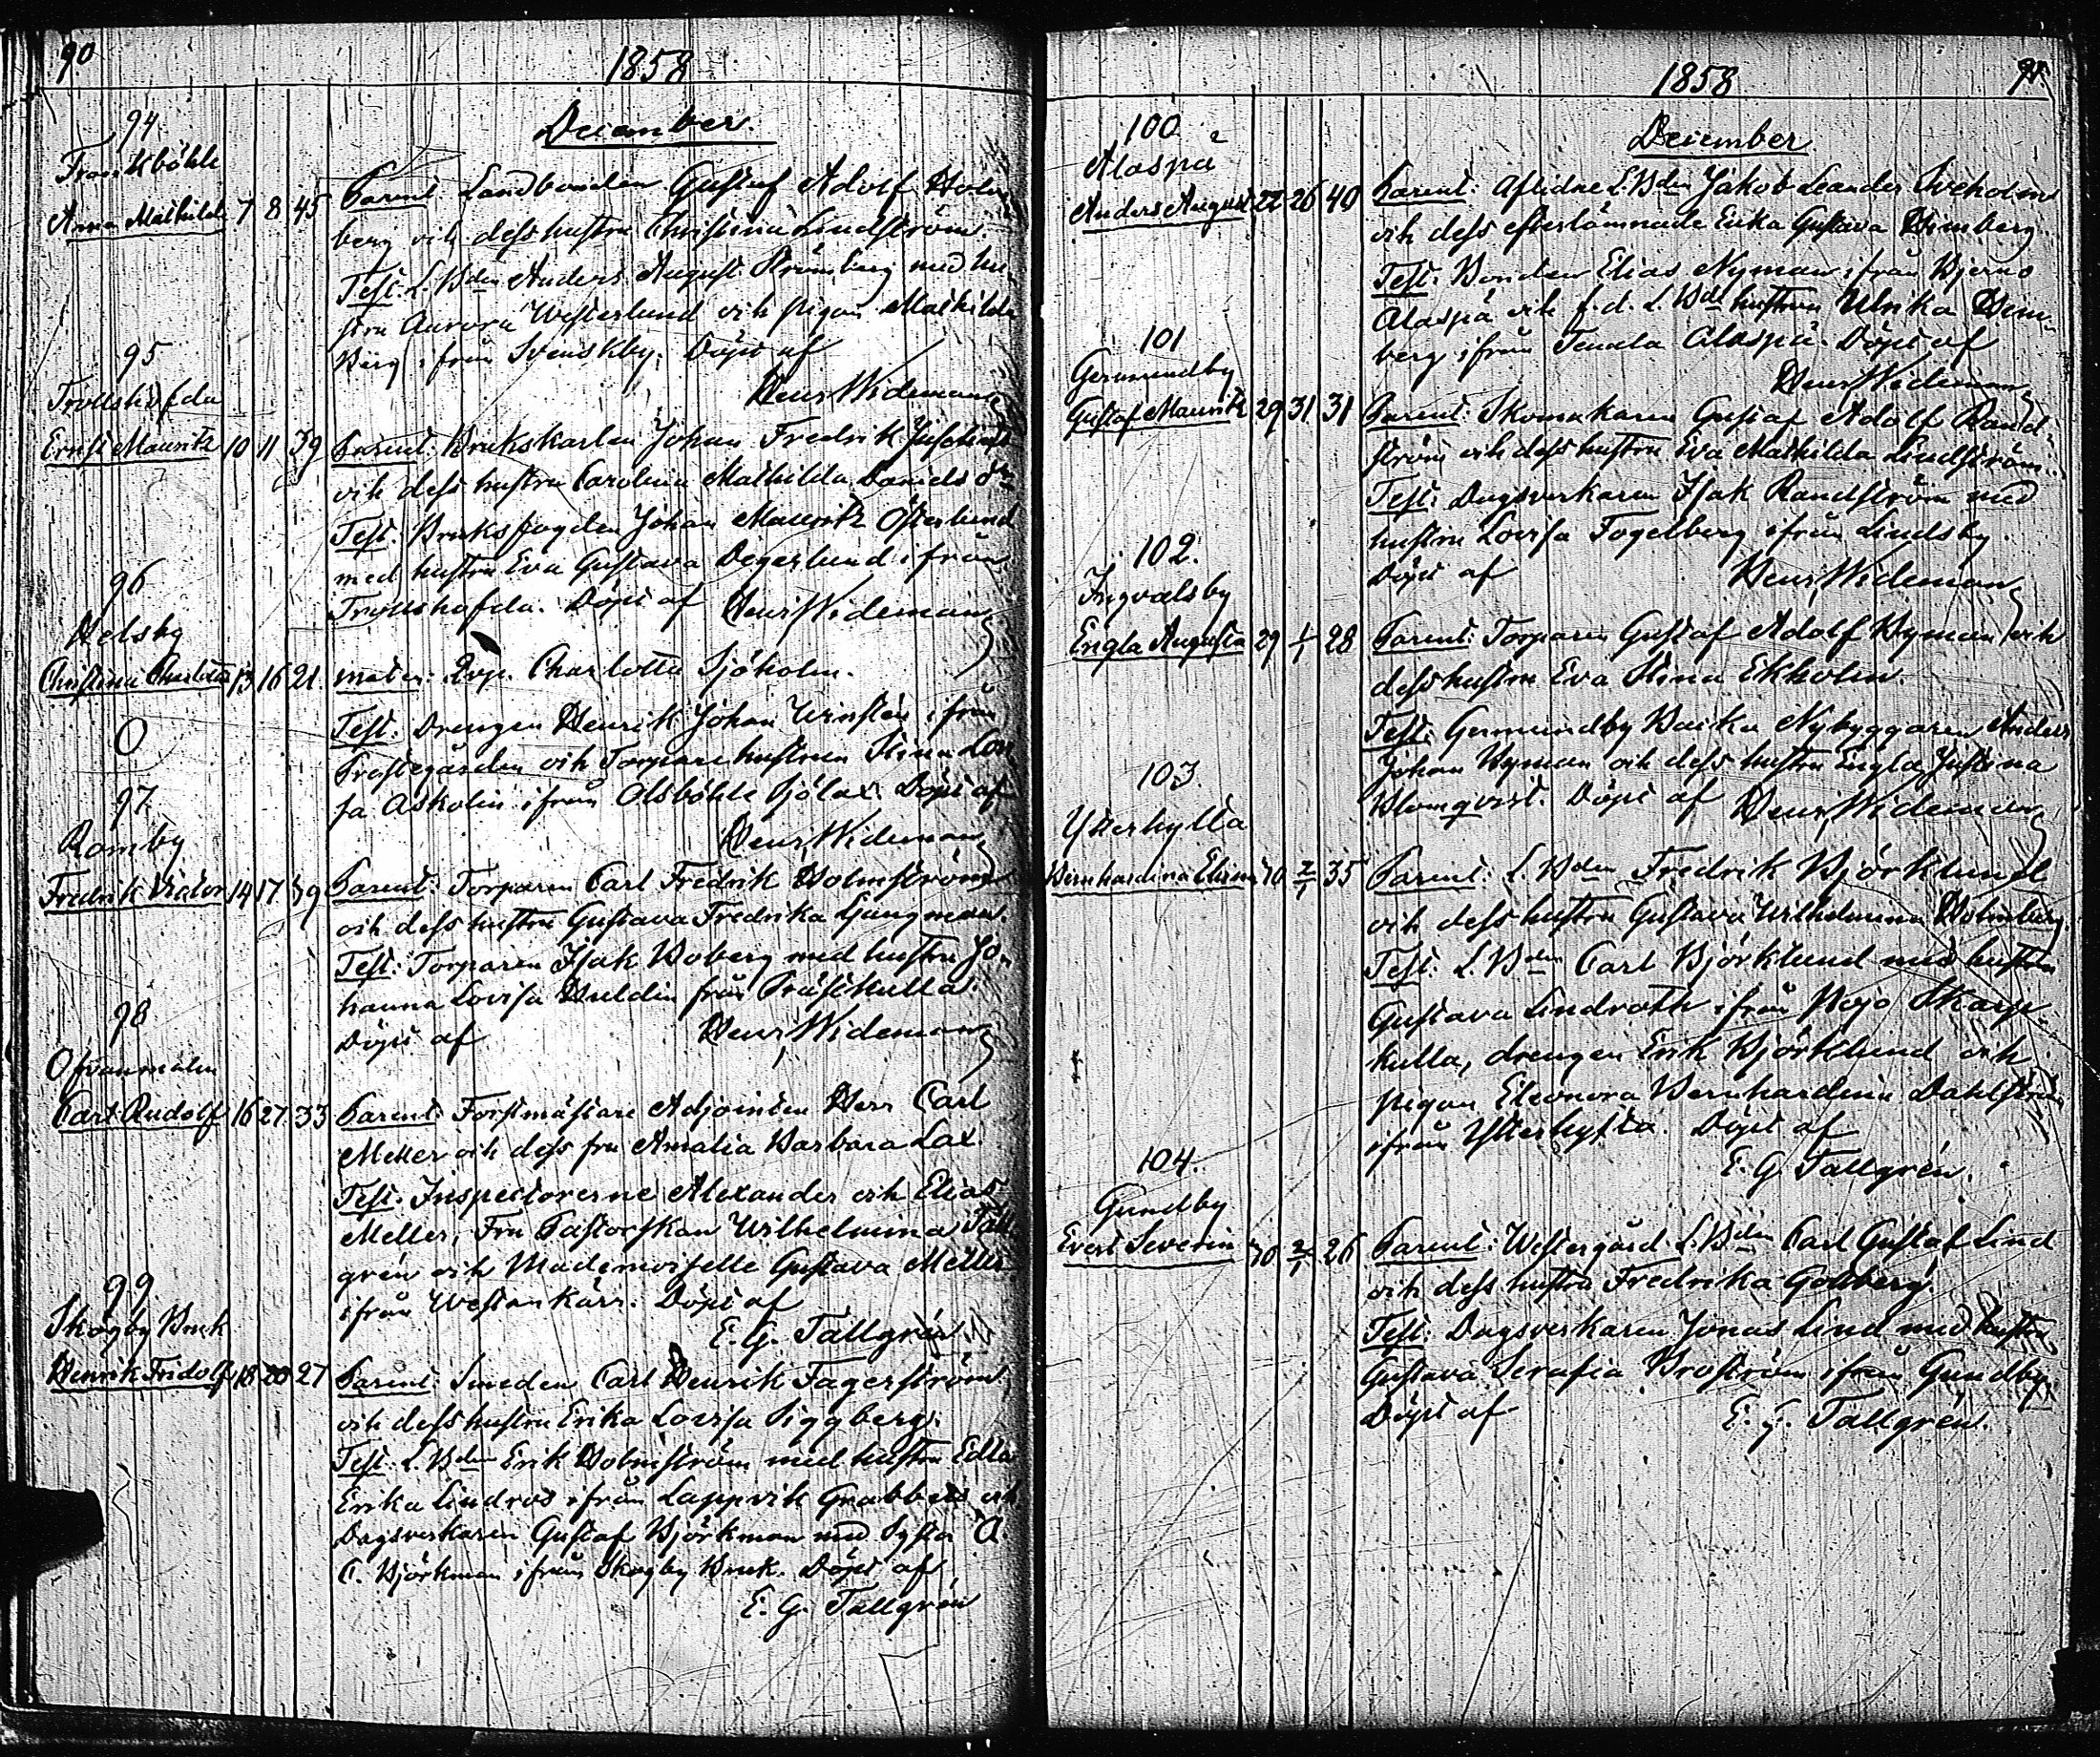 90
1858
December.
94
Frankböhle
Anna Mathilda 7 8 45
Parent: Landbonden Gustaf Adolf Holm-
berg och dess hustru Christina Lindström.
Test: L. Bden Anders August Strömberg med hu-
stru Aurora Westerlund och pigan Mathilda
Berg ifrån Svenskby. Döpt af
Henr. Wideman
95
Trollshofda
Ernst Mauritz 10 11 39
Parent: Brukskarlen Johan Fredrik
och dess hustru Carolina Mathilda Daniels dr
Test. Bruksfogden Johan Mauritz Österlund
med hustru Eva Gustava Degerlund ifrån
Trollshofda. Döpt af Henr. Wideman
96
Helsby
Christina Charlotta 13 16 21
Mater: Charlotta Sjöholm.
Test: Drengen Henrik Johan Winsten ifrån
Prästegården och Torpare hustrun Stina Lovi
sa Askolin ifrån Olsböhle Sjölax. Döpt af
Henr. Wideman
O
97
Romby
Fredrik Victor 14 17 39
Parent: Torparen Carl Fredrik Holmström
och dess hustru Gustava Fredrika Ljungman.
Test: Torparen Isak Boberg med hustru Jo-
hanna Lovisa Huldin från Prästkulla.
Döpt af Henr. Wideman
98
Ofvanmalm
Carl Rudolf 16 27 33
Parent: Forstmästare Adjointen Herr Carl
Meller och dess fru Amalia Barbara Lax.
Test. Inspectorerne Alexander och Elias
Meller, Fru Pastorskan Wilhelmina Tall
grén och Mademoiselle Gustava Meller
ifrån Westankärr. Döpt af
E. G. Tallgrén
99
Skogby Bruk
Henrik Fridolf 18 20 27
Parent: Smeden Carl Henrik Fagerström
och dess hustru Erika Lovisa Siggberg.
Test: L. Bden Erik Holmström med hustru Edla
Erika Lindros ifrån Lappvik Grabbers och
Dagsverkaren Gustaf Björkman med Syster A
C. Björkman ifrån Skogby Bruk. Döpt af
E. G. Tallgrén
1858
91
December
100
Alaspå
Anders August 22 26 40
Parent: Aflidne L. Bden Jakob Leander Sveholm
och dess efterlämnade Enka Gustava Himberg.
Test: Bonden Elias Nyman ifrån Bjerno
Alaspå och f.d. L. Bds hustrun Ulrika Him-
berg ifrån Tenala Alaspå. Döpt af
Henr. Wideman
101
Germundby
Gustaf Mauritz 29 31 31
Parent: Skomakaren Gustaf Adolf Rand-
ström och dess hustru Eva Mathilda Lindström.
Test: Dagsverkaren Isak Randström med
hustru Lovisa Fogelberg ifrån Lindsby.
Döpt af Henr. Wideman
102.
Ingvalsby
Engla Augusta 29 1/1 28
Parent: Torparen Gustaf Adolf Nyman och
dess hustru Eva Stina Ekholm.
Test: Germundby Backa Nybyggaren Anders
Johan Nyman och dess hustru Engla Justina
Blomqvist. Döpt af Henr. Wideman
103.
Ytterkylla
Bernhardina Elisina 30 2/1 35
Parent: L. Bden Fredrik Björklund
och dess hustru Gustava Wilhelmina Holmberg.
Test: L. Bden Carl Björklund med hustru
Gustava Lindroth ifrån Pojo Skarp-
kulla, drengen Erik Björklund och
pigan Eleonora Bernhardina Dahlström
ifrån Ytterkylla. Döpt af
E. G. Tallgrén.
104.
Gundby
Evert Severin 30 2/1 26
Parent: Westergård L. Bden Carl Gustaf Lind
och dess hustru Fredrika Gottberg.
Test: Dagsverkaren Jonas Lind med hustru
Gustava Serafia Broström ifrån Gundby.
Döpt af E. G. Tallgrén.